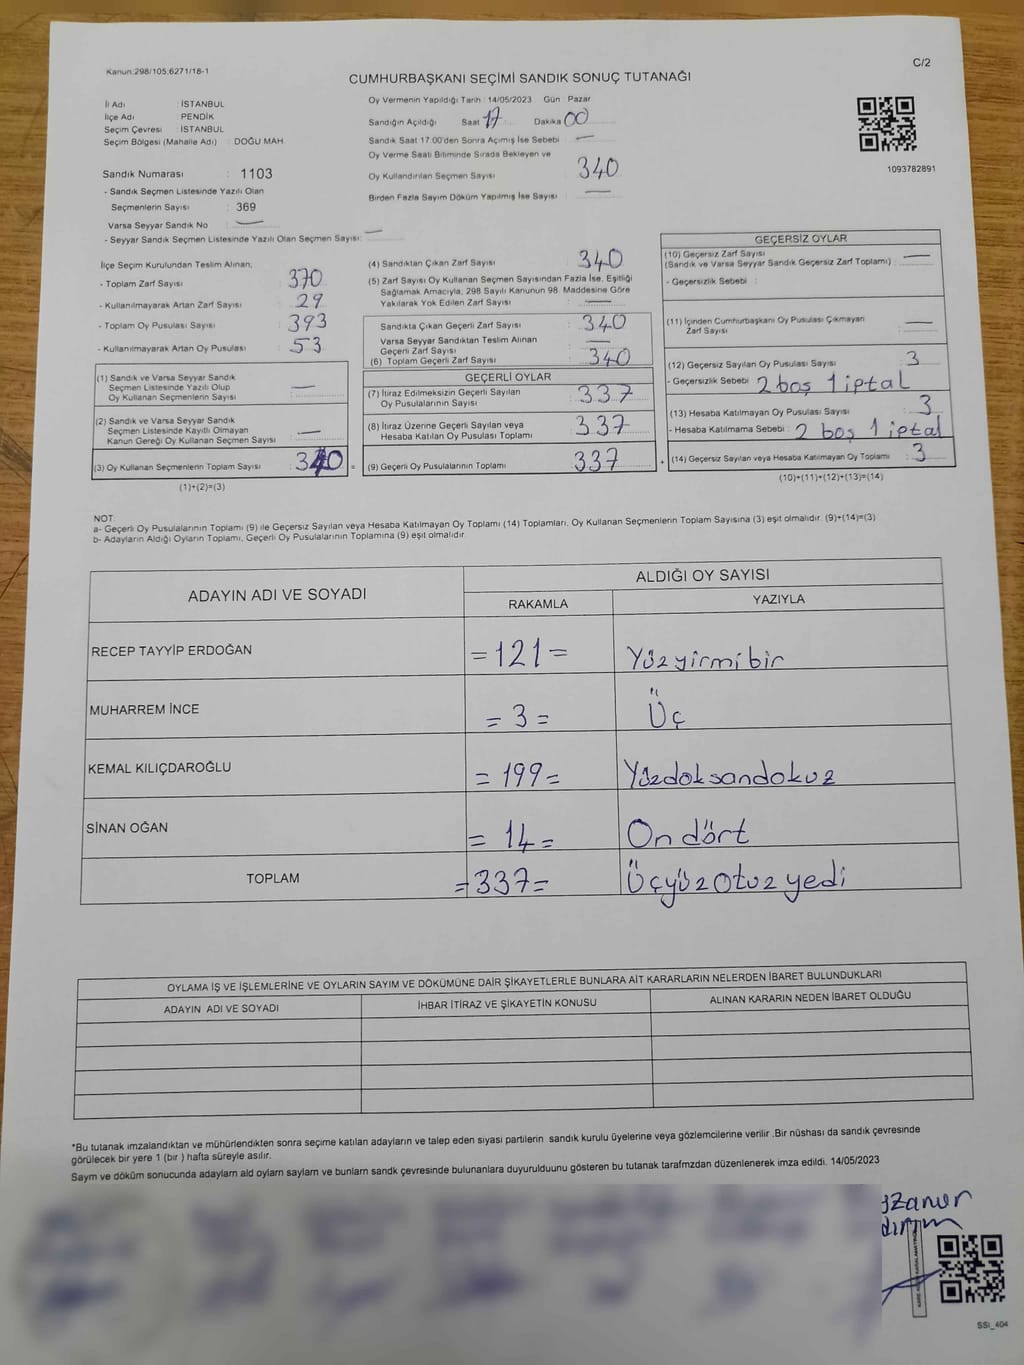 Kanun:298/105,6271/18-1
C/2
CUMHURBAŞKANI SEÇİMİ SANDIK SONUÇ TUTANAĞI
İl Adı : İSTANBUL
İlçe Adı : PENDİK
Seçim Çevresi : İSTANBUL
Seçim Bölgesi (Mahalle Adı) : DOĞU MAH.
Oy Vermenin Yapıldığı Tarih : 14/05/2023 Gün : Pazar
Sandığın Açıldığı Saat 17 Dakika 00
Sandık Saat 17.00'den Sonra Açımış İse Sebebi : —
Oy Verme Saati Bitiminde Sırada Bekleyen ve
Oy Kullandırılan Seçmen Sayısı : 340
Birden Fazla Sayım Döküm Yapılmış İse Sayısı : —
1093782891
Sandık Numarası : 1103
- Sandık Seçmen Listesinde Yazılı Olan
Seçmenlerin Sayısı : 369
Varsa Seyyar Sandık No : —
- Seyyar Sandık Seçmen Listesinde Yazılı Olan Seçmen Sayısı: —
İlçe Seçim Kurulundan Teslim Alınan;
- Toplam Zarf Sayısı : 370
- Kullanılmayarak Artan Zarf Sayısı : 29
- Toplam Oy Pusulası Sayısı : 393
- Kullanılmayarak Artan Oy Pusulası : 53
(1) Sandık ve Varsa Seyyar Sandık
Seçmen Listesinde Yazılı Olup
Oy Kullanan Seçmenlerin Sayısı : —
(2) Sandık ve Varsa Seyyar Sandık
Seçmen Listesinde Kayıtlı Olmayan
Kanun Gereği Oy Kullanan Seçmen Sayısı : —
(3) Oy Kullanan Seçmenlerin Toplam Sayısı : 340 =
(1)+(2)=(3)
(4) Sandıktan Çıkan Zarf Sayısı : 340
(5) Zarf Sayısı Oy Kullanan Seçmen Sayısından Fazla İse, Eşitliği
Sağlamak Amacıyla, 298 Sayılı Kanunun 98. Maddesine Göre
Yakılarak Yok Edilen Zarf Sayısı : —
Sandıkta Çıkan Geçerli Zarf Sayısı : 340
Varsa Seyyar Sandıktan Teslim Alınan
Geçerli Zarf Sayısı : —
(6) Toplam Geçerli Zarf Sayısı : 340
GEÇERLİ OYLAR
(7) İtiraz Edilmeksizin Geçerli Sayılan
Oy Pusulalarının Sayısı : 337
(8) İtiraz Üzerine Geçerli Sayılan veya
Hesaba Katılan Oy Pusulası Toplamı : 337
(9) Geçerli Oy Pusulalarının Toplamı : 337 +
GEÇERSİZ OYLAR
(10) Geçersiz Zarf Sayısı
(Sandık ve Varsa Seyyar Sandık Geçersiz Zarf Toplamı) : —
- Geçersizlik Sebebi :
(11) İçinden Cumhurbaşkanı Oy Pusulası Çıkmayan
Zarf Sayısı : —
(12) Geçersiz Sayılan Oy Pusulası Sayısı : 3
- Geçersizlik Sebebi : 2 boş 1 iptal
(13) Hesaba Katılmayan Oy Pusulası Sayısı : 3
- Hesaba Katılmama Sebebi : 2 boş 1 iptal
(14) Geçersiz Sayılan veya Hesaba Katılmayan Oy Toplamı : 3
(10)+(11)+(12)+(13)=(14)
NOT:
a- Geçerli Oy Pusulalarının Toplamı (9) ile Geçersiz Sayılan veya Hesaba Katılmayan Oy Toplamı (14) Toplamları, Oy Kullanan Seçmenlerin Toplam Sayısına (3) eşit olmalıdır. (9)+(14)=(3)
b- Adayların Aldığı Oyların Toplamı, Geçerli Oy Pusulalarının Toplamına (9) eşit olmalıdır.
ADAYIN ADI VE SOYADI
ALDIĞI OY SAYISI
RAKAMLA YAZIYLA
RECEP TAYYİP ERDOĞAN =121= Yüzyirmibir
MUHARREM İNCE =3= Üç
KEMAL KILIÇDAROĞLU =199= Yüzdoksandokuz
SİNAN OĞAN =14= On dört
TOPLAM =337= Üçyüzotuzyedi
OYLAMA İŞ VE İŞLEMLERİNE VE OYLARIN SAYIM VE DÖKÜMÜNE DAİR ŞİKAYETLERLE BUNLARA AİT KARARLARIN NELERDEN İBARET BULUNDUKLARI
ADAYIN ADI VE SOYADI İHBAR İTİRAZ VE ŞİKAYETİN KONUSU ALINAN KARARIN NEDEN İBARET OLDUĞU
*Bu tutanak imzalandıktan ve mühürlendikten sonra seçime katılan adayların ve talep eden siyasi partilerin sandık kurulu üyelerine veya gözlemcilerine verilir .Bir nüshası da sandık çevresinde
görülecek bir yere 1 (bir ) hafta süreyle asılır.
Sayım ve döküm sonucunda adayların ald oyların sayları ve bunların sandk çevresinde bulunanlara duyurulduunu gösteren bu tutanak tarafmzdan düzenlenerek imza edildi. 14/05/2023
SSI_404